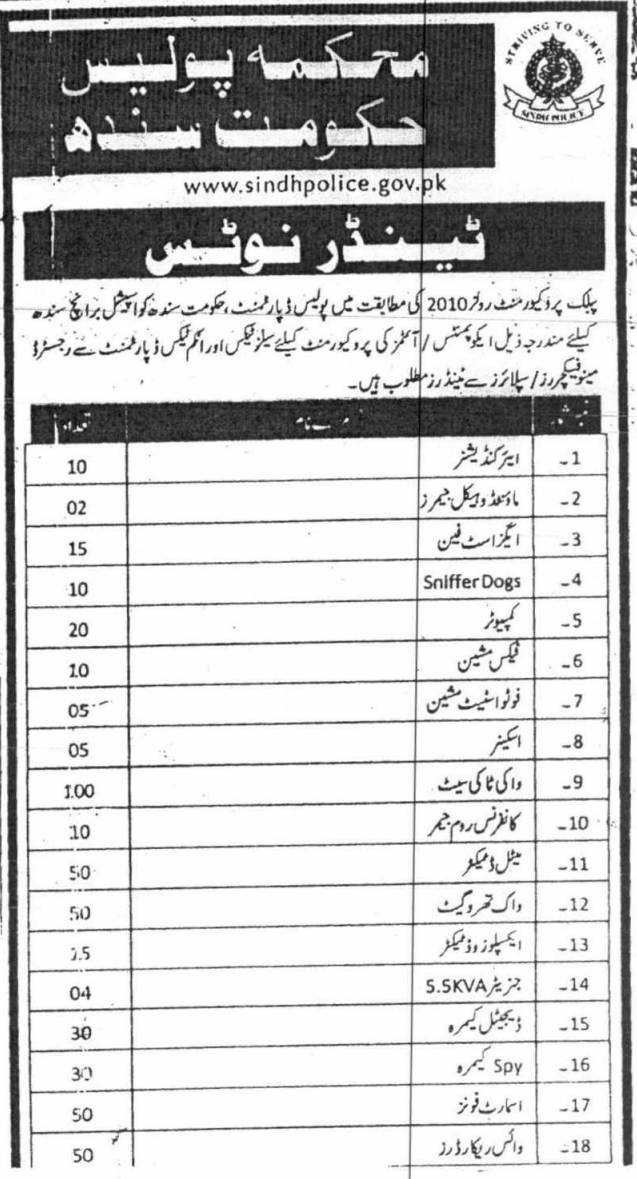 محکمہ پولیس
حکومت سندھ
STRIVING TO SERVE
SINDH POLICE
www.sindhpolice.gov.pk
ٹینڈر نوٹس
پبلک پروکیورمنٹ رولز 2010 کی مطابقت میں پولیس ڈپارٹمنٹ، حکومت سندھ کو اسپیشل برانچ سندھ
کیلئے مندرجہ ذیل ایکوپمنٹس / آئٹمز کی پروکیورمنٹ کیلئے سیلز ٹیکس اور انکم ٹیکس ڈپارٹمنٹ سے رجسٹرڈ
مینوفیکچررز / سپلائرز سے ٹینڈرز مطلوب ہیں۔
نام تعداد
1۔ ایئر کنڈیشنر 10
2۔ ماؤنٹڈ وہیکل جیمرز 02
3۔ ایگزاسٹ فین 15
4۔ Sniffer Dogs 10
5۔ کمپیوٹر 20
6۔ فیکس مشین 10
7۔ فوٹو اسٹیٹ مشین 05
8۔ اسکینر 05
9۔ واکی ٹاکی سیٹ 100
10۔ کانفرنس روم جیمر 10
11۔ میٹل ڈیٹیکٹر 50
12۔ واک تھرو گیٹ 50
13۔ ایکسپلوزو ڈیٹیکٹر
14۔ جنریٹر 5.5KVA 04
15۔ ڈیجیٹل کیمرہ 30
16۔ Spy کیمرہ 30
17۔ اسمارٹ فونز 50
18۔ وائس ریکارڈرز 50